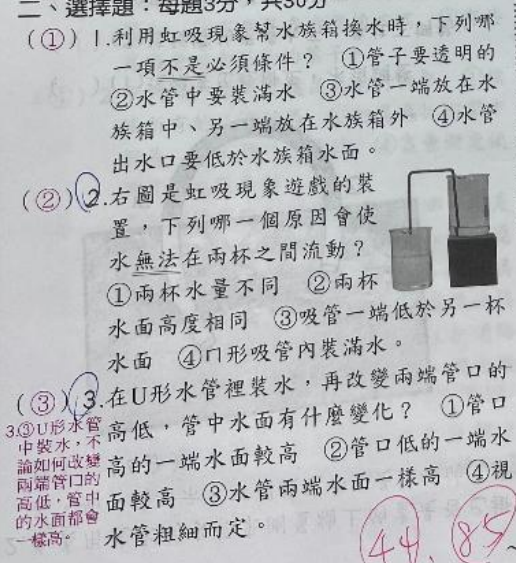 二、選擇題：每題3分，共30分
(①) 1.利用虹吸現象幫水族箱換水時，下列哪
一項不是必須條件？ ①管子要透明的
②水管中要裝滿水 ③水管一端放在水
族箱中、另一端放在水族箱外 ④水管
出水口要低於水族箱水面。
(②) 2.右圖是虹吸現象遊戲的裝
置，下列哪一個原因會使
水無法在兩杯之間流動？
①兩杯水量不同 ②兩杯
水面高度相同 ③吸管一端低於另一杯
水面 ④ㄇ形吸管內裝滿水。
(③) 3.在U形水管裡裝水，再改變兩端管口的
高低，管中水面有什麼變化？ ①管口
高的一端水面較高 ②管口低的一端水
面較高 ③水管兩端水面一樣高 ④視
水管粗細而定。
3.③U形水管
中裝水，不
論如何改變
兩端管口的
高低，管中
的水面都會
一樣高。
44 85